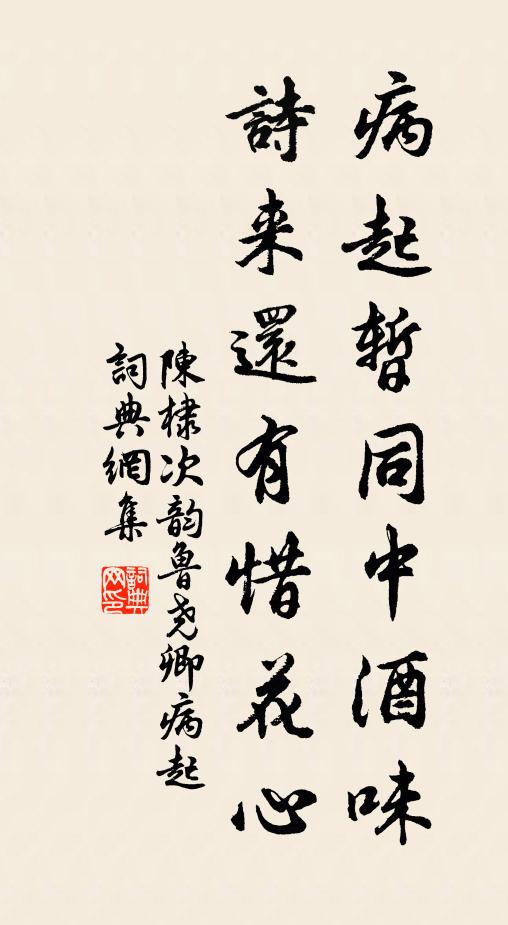 病起暫同中酒味
詩来還有惜花心
陳棣次韵魯尧卿病起
詞典網集
詞典
网印